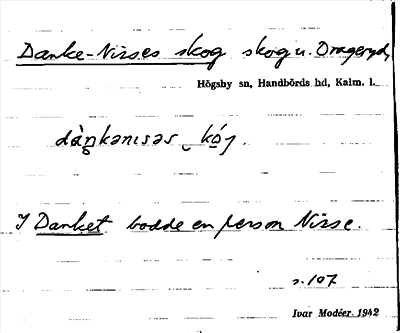 Danke-Nisses skog skog u. Drageryd,
Högsby sn, Handbörds hd, Kalm. l.
dàŋkənɪsəs ‿ kóg.
I Danket bodde en person Nisse.
s. 107
Ivar Modéer 1942